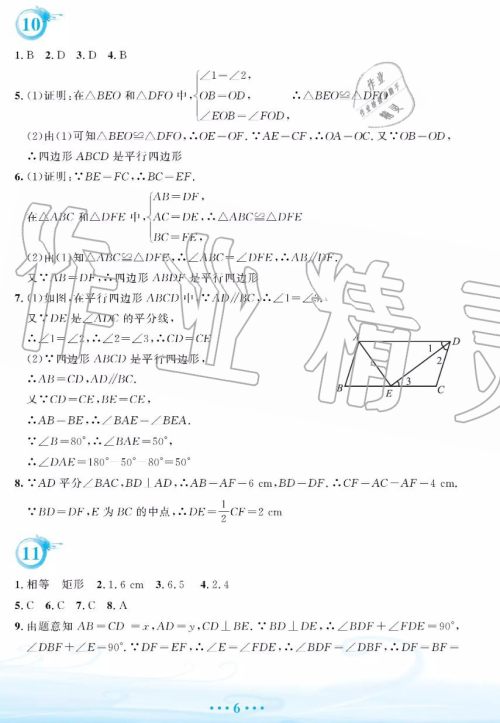 10
1. B  2. D  3. D  4. B
5. (1)证明:在△BEO 和△DFO 中,{∠1=∠2, OB=OD, ∠EOB=∠FOD, ∴△BEO≌△DFO
(2)由(1)可知△BEO≌△DFO,∴OE=OF.∵AE=CF,∴OA=OC.又∵OB=OD,
∴四边形 ABCD 是平行四边形
6. (1)证明:∵BE=FC,∴BC=EF.
在△ABC 和△DFE 中,{AB=DF, AC=DE, BC=FE, ∴△ABC≌△DFE
(2)由(1)知△ABC≌△DFE,∴∠ABC=∠DFE,∴AB∥DF.
又∵AB=DF,∴四边形 ABDF 是平行四边形
7. (1)如图,在平行四边形 ABCD 中,∵AD∥BC,∴∠1=∠3.
又∵DE 是∠ADC 的平分线,
∴∠1=∠2,∴∠2=∠3,∴CD=CE
(2)∵四边形 ABCD 是平行四边形,
∴AB=CD,AD∥BC.
又∵CD=CE,BE=CE,
∴AB=BE,∴∠BAE=∠BEA.
∵∠B=80°,∴∠BAE=50°,
∴∠DAE=180°-50°-80°=50°
A D 1 2 3 B E C
8. ∵AD 平分∠BAC,BD⊥AD,∴AB=AF=6 cm,BD=DF.∴CF=AC-AF=4 cm.
∵BD=DF,E 为 BC 的中点,∴DE=1/2CF=2 cm
11
1. 相等 矩形  2. 1.6 cm  3. 6.5  4. 2.4
5. C  6. C  7. C  8. A
9. 由题意知 AB=CD=x,AD=y,CD⊥BE.∵BD⊥DE,∴∠BDF+∠FDE=90°,
∠DBF+∠E=90°.∵DF=EF,∴∠E=∠FDE,∴∠BDF=∠DBF,∴DF=BF=
6
作业精灵